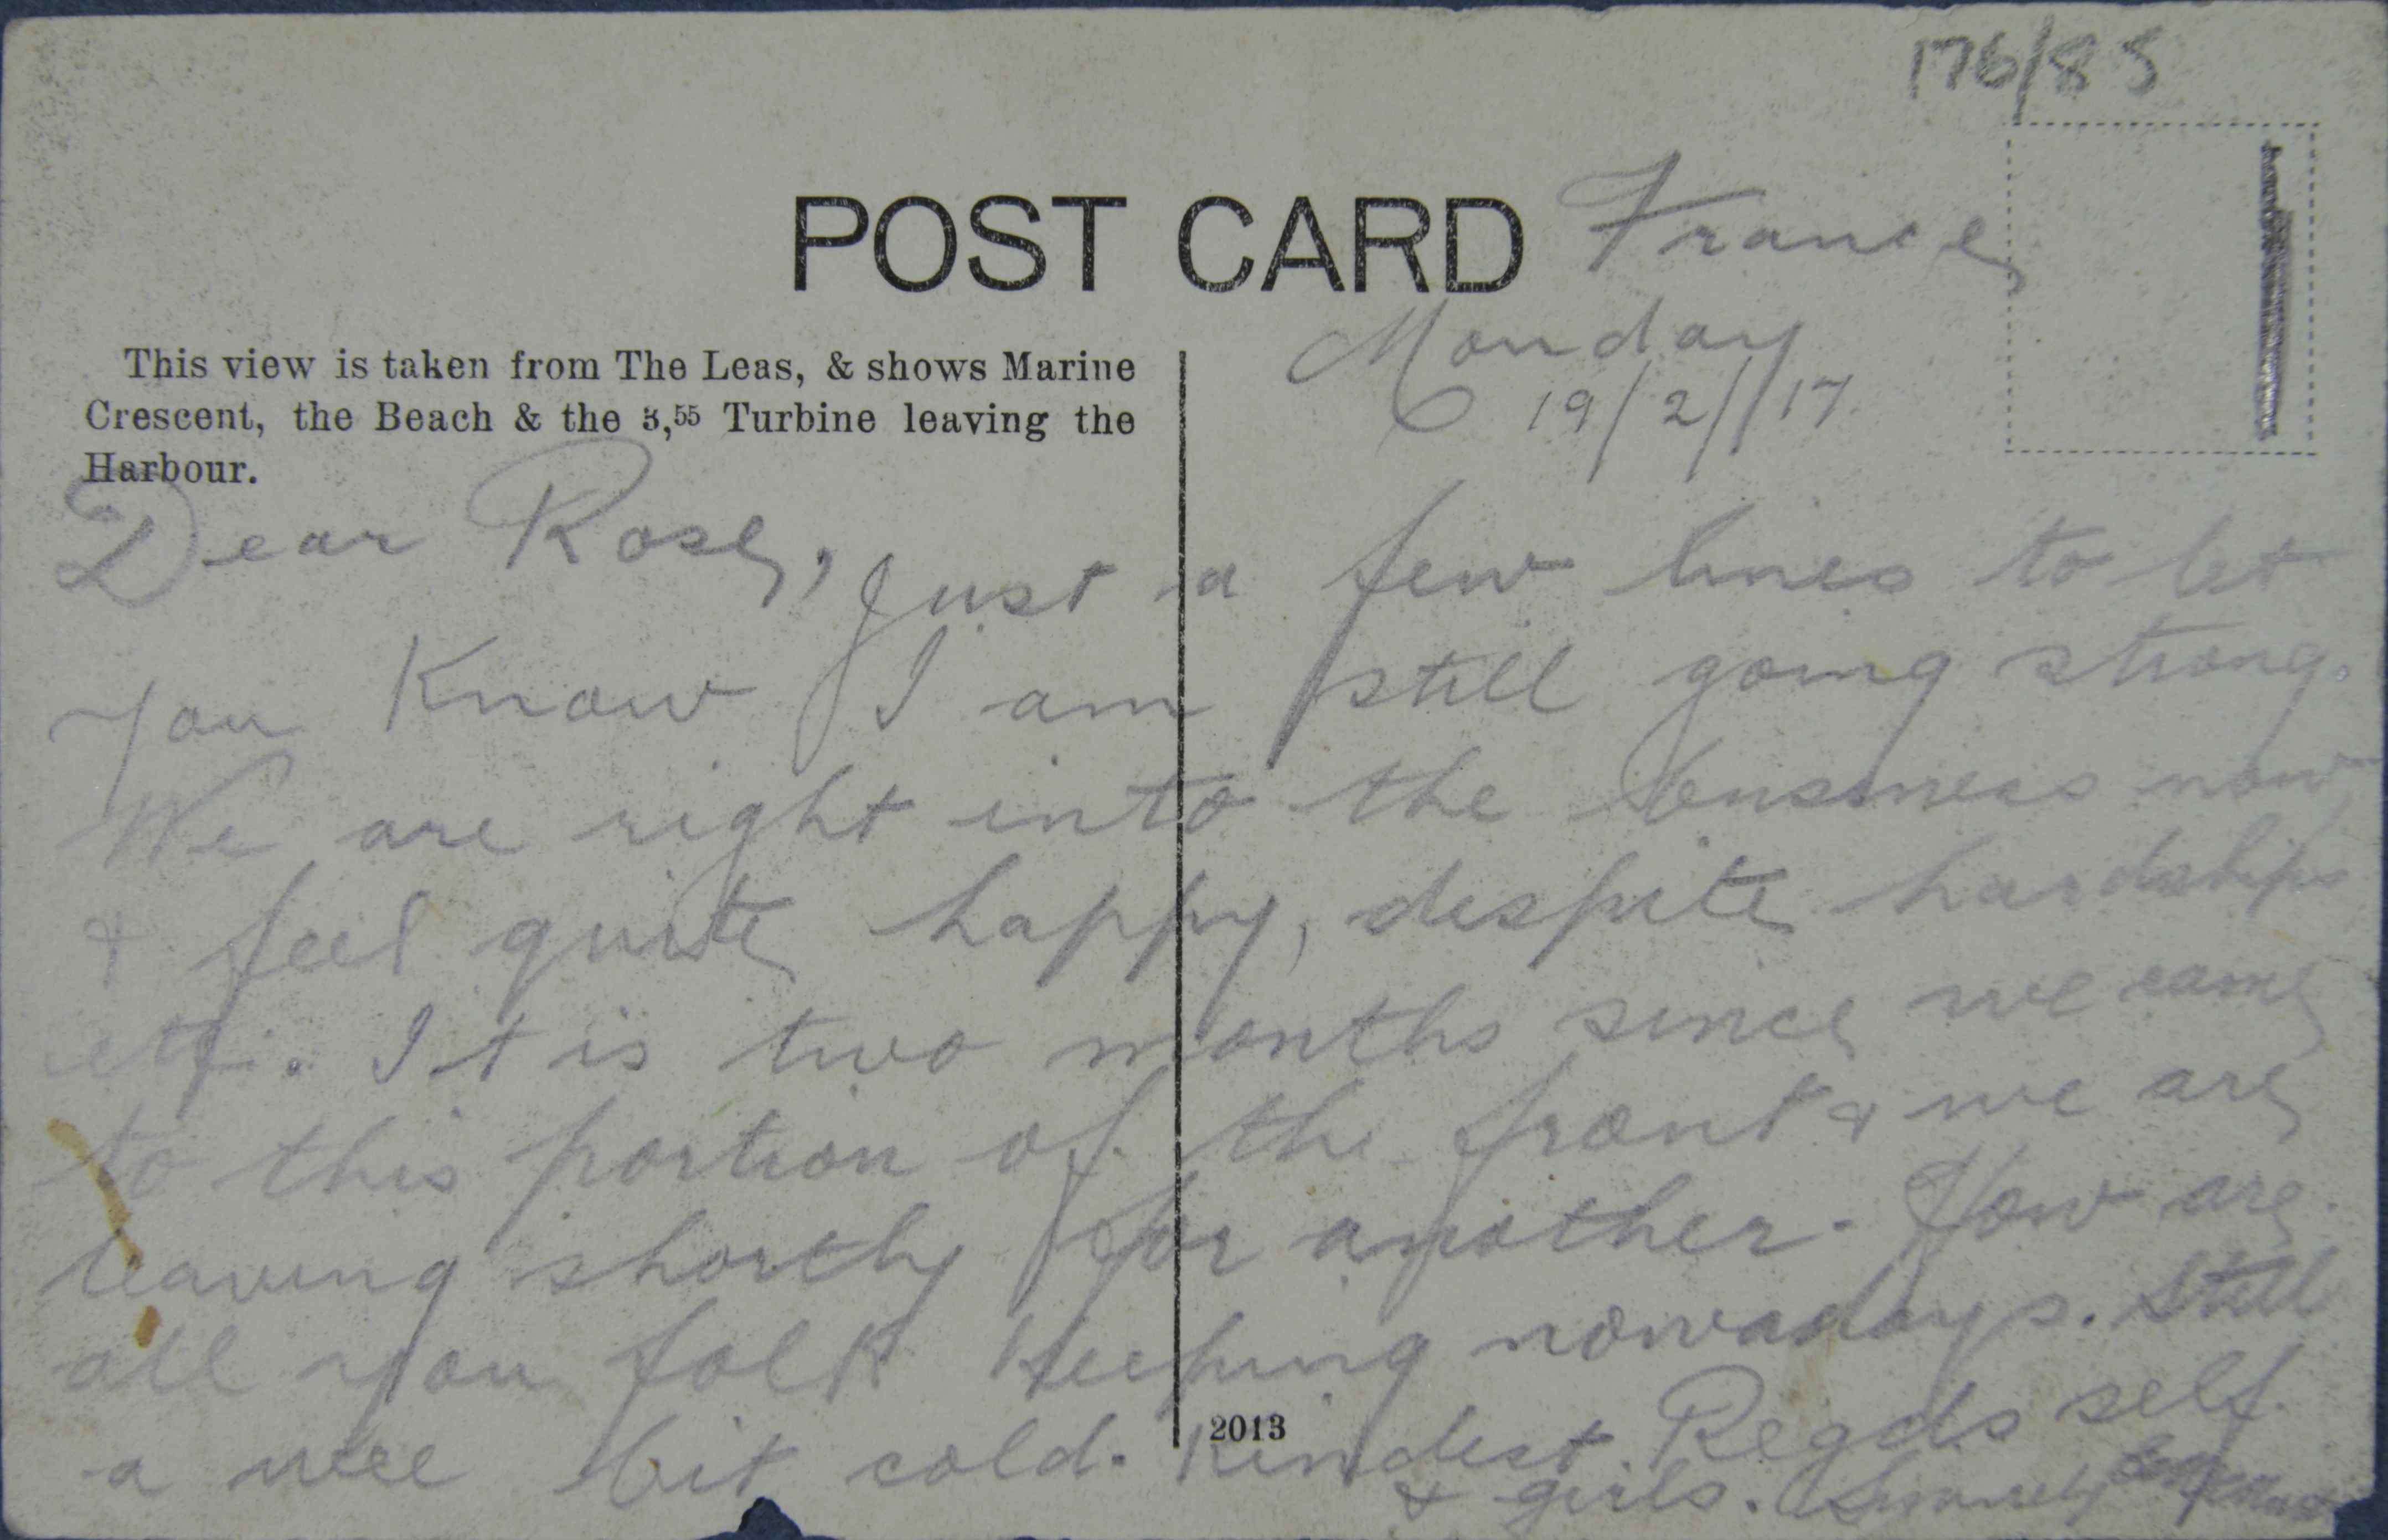 176/85
POST CARD
France
Monday
19/2/17
This view is taken from The Leas, & shows Marine
Crescent, the Beach & the 3,55 Turbine leaving the
Harbour.
Dear Rose, Just a few lines to let
you know I am still going strong.
We are right into the business now
& feel quite happy, despite hardships
etc. It is two months since we came
to this portion of the front & we are
leaving shortly for another. How are
all you folk keeping nowadays. Still
a wee bit cold. Kindest Regds self
& girls. Sincerely
2013